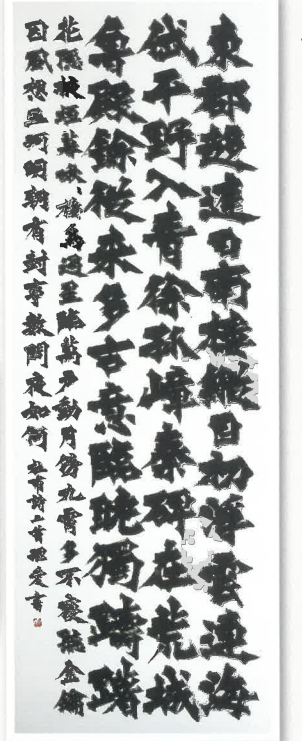 東郡趨庭日南樓縱目初浮雲連海
岱平野入青徐孤嶂秦碑在荒城
魯殿餘從來多古意臨眺獨躊躇
花隱掖垣暮啾、棲鳥過星臨萬戶動月傍九霄多不寢聽金鑰
因風想玉珂明朝有封事數問夜如何 杜甫詩二首 愛書